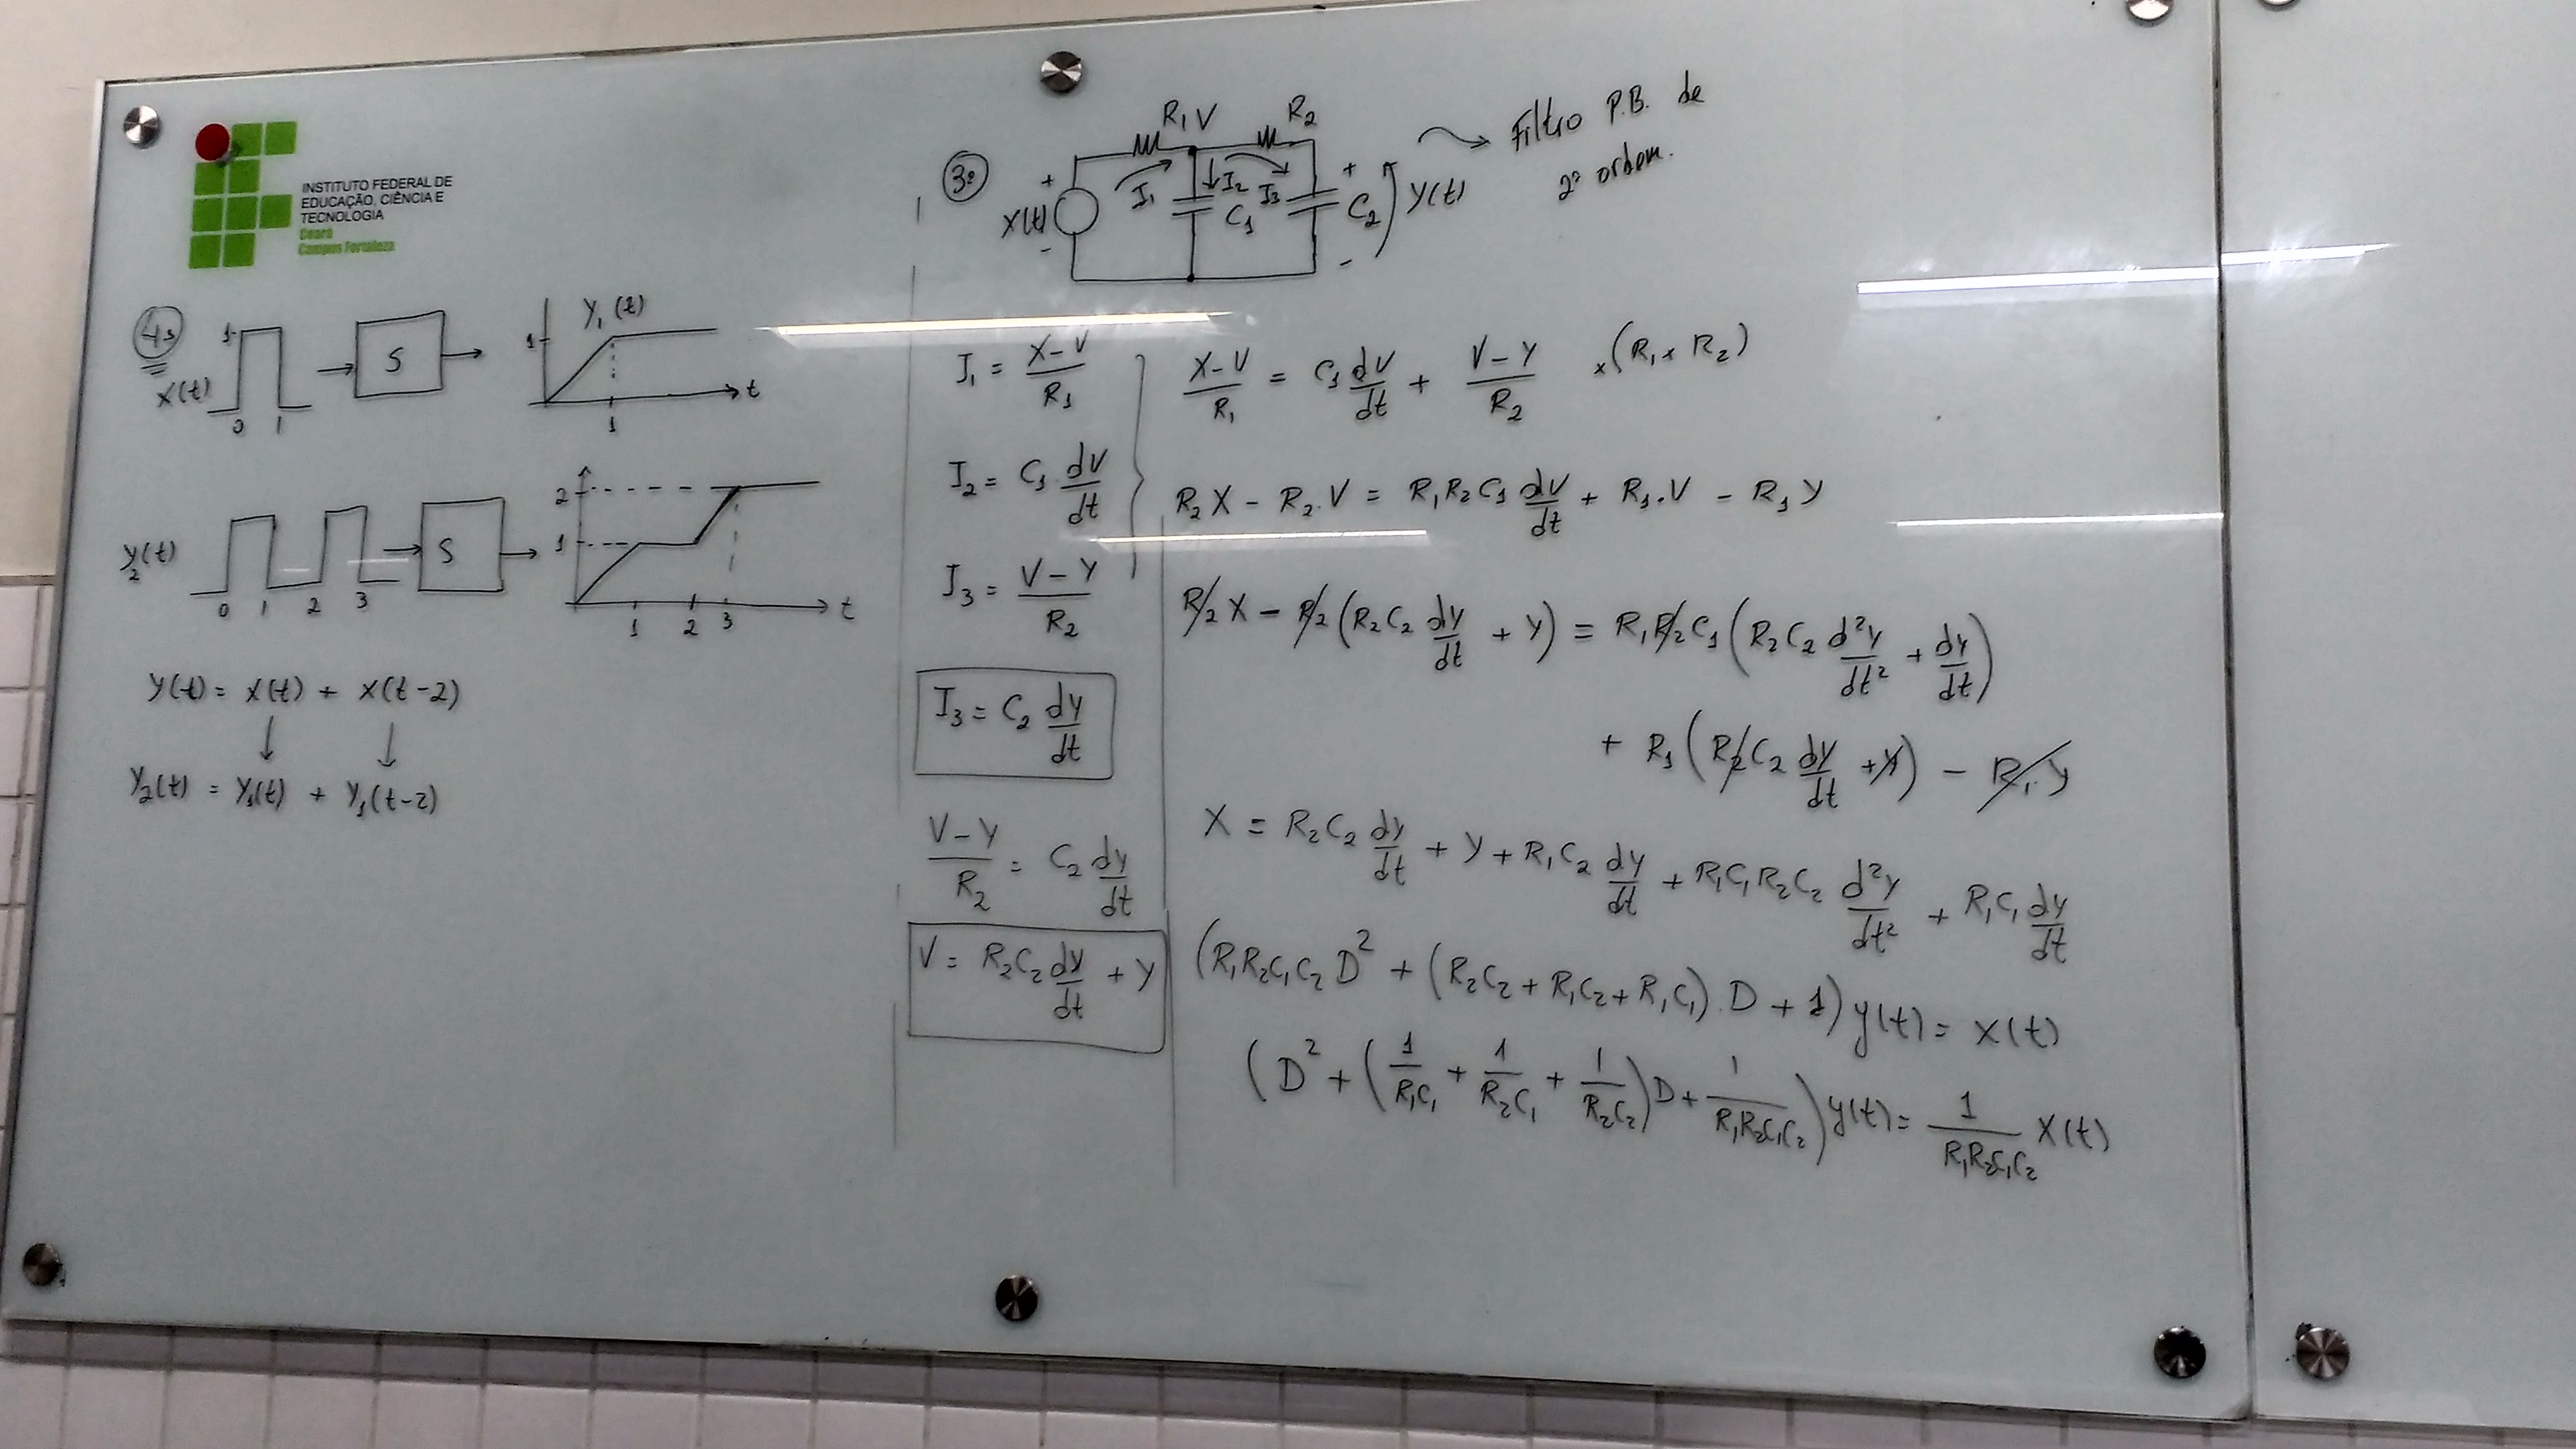 INSTITUTO FEDERAL DE
EDUCAÇÃO, CIÊNCIA E
TECNOLOGIA
Ceará
Campus Fortaleza
4ª
1
x(t)
0 1
S
y₁(t)
1
1
t
y₂(t)
0 1 2 3
S
2
1
1 2 3
t
y(t) = x(t) + x(t-2)
y₂(t) = y₁(t) + y₁(t-2)
3ª
R₁ V R₂
+
x(t)
-
I₁
I₂
C₁
I₃
+
C₂
-
y(t)
Filtro P.B. de
2ª ordem.
I₁ = (X-V)/R₁
I₂ = C₁ dV/dt
I₃ = (V-Y)/R₂
I₃ = C₂ dy/dt
(V-Y)/R₂ = C₂ dy/dt
V = R₂C₂ dy/dt + Y
(X-V)/R₁ = C₁ dV/dt + (V-Y)/R₂ ×(R₁×R₂)
R₂X - R₂.V = R₁R₂C₁ dV/dt + R₁.V - R₁Y
R₂X - R₂(R₂C₂ dy/dt + Y) = R₁R₂C₁(R₂C₂ d²y/dt² + dy/dt)
+ R₁(R₂C₂ dy/dt + Y) - R₁.Y
X = R₂C₂ dy/dt + Y + R₁C₂ dy/dt + R₁C₁R₂C₂ d²y/dt² + R₁C₁ dy/dt
(R₁R₂C₁C₂ D² + (R₂C₂ + R₁C₂ + R₁C₁).D + 1) y(t) = x(t)
(D² + (1/R₁C₁ + 1/R₂C₁ + 1/R₂C₂)D + 1/R₁R₂C₁C₂) y(t) = 1/R₁R₂C₁C₂ x(t)